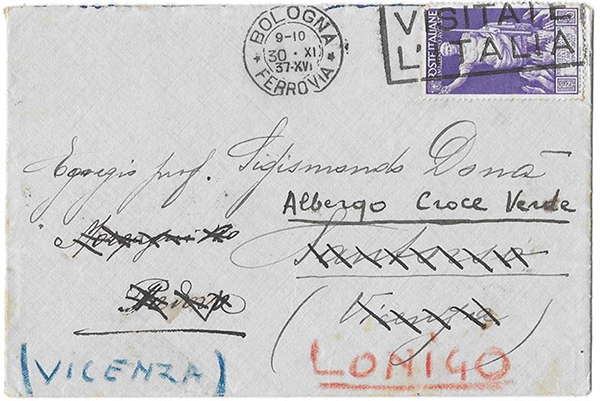 BOLOGNA
9-10
30 · XI
37·XVI
* FERROVIA *
VISITATE
L'ITALIA
POSTE ITALIANE
Egregio prof. Sigismondo Donà
Albergo Croce Verde
Padova
(Vicenza)
(VICENZA)
LONIGO